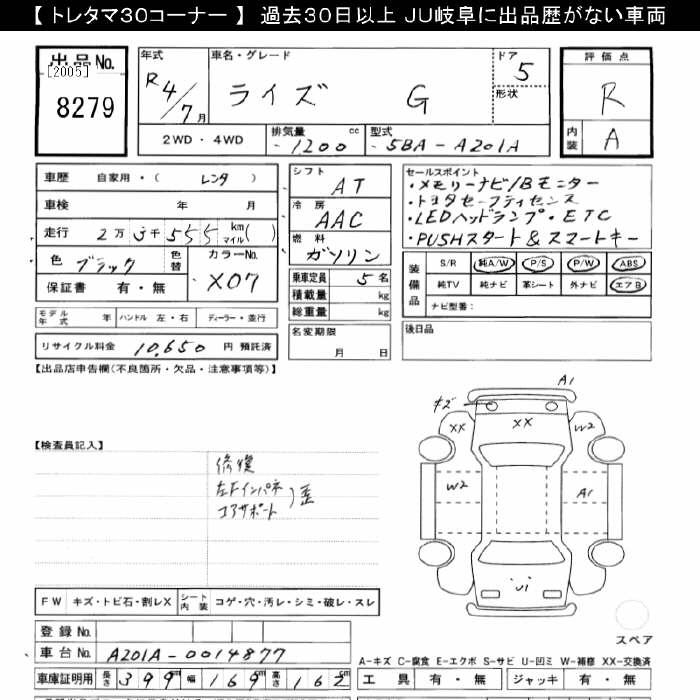 【 トレタマ30コーナー 】 過去30日以上 JU岐阜に出品歴がない車両
出品No.
[2005]
8279
年式
R4/7月
車名・グレード
ライズ G
ドア
5
形状
評価点
R
内装
A
2WD・4WD
排気量
1200 cc
型式
5BA-A201A
車歴 自家用・( レンタ )
車検 年 月
走行 2万 3千 555 km マイル( )
色 ブラック
色替
カラーNo.
X07
保証書 有・無
モデル年式 年 ハンドル 左・右 ディーラー・並行
リサイクル料金 10,650 円 預託済
シフト
AT
冷房
AAC
燃料
ガソリン
乗車定員 5名
積載量 kg
総重量 kg
名変期限
月 日
セールスポイント
・メモリーナビ/Bモニター
・トヨタセーフティセンス
・LEDヘッドランプ・ETC
・PUSHスタート&スマートキー
装備品
S/R 純A/W P/S P/W ABS
純TV 純ナビ 革シート 外ナビ エアB
ナビ型番：
後日品
【出品店申告欄(不良箇所・欠品・注意事項等)】
【検査員記入】
修復
左Fインパネ
コアサポート
)歪
A1
キズ
XX
XX
W2
W2
A1
U1
スペア
FW キズ・トビ石・割レX
シート内装 コゲ・穴・汚レ・シミ・破レ・スレ
登録No.
車台No. A201A-0014877
車庫証明用 長さ 399 cm 幅 169 cm 高さ 162 cm
A-キズ C-腐食 E-エクボ S-サビ U-凹ミ W-補修 XX-交換済
工具 有・無 ジャッキ 有・無